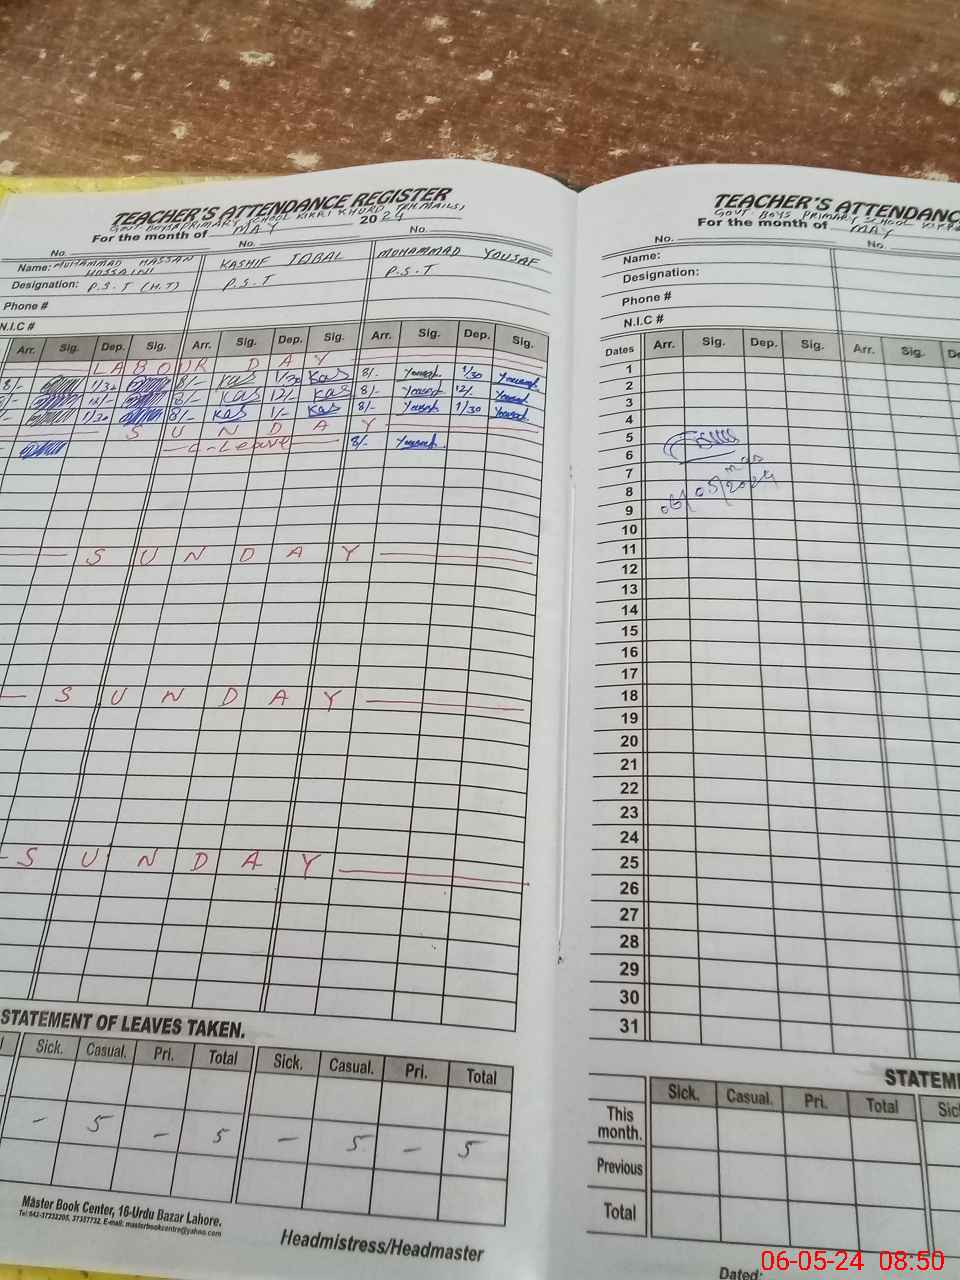 TEACHER'S ATTENDANCE REGISTER
GOVT. BOYS PRIMARY SCHOOL KIKRI KHURD TEH. MAILSI
For the month of MAY 2024
No. No. No.
Name: MUHAMMAD HASSAN HOSSAINI KASHIF IQBAL MUHAMMAD YOUSAF
Designation: P.S.T (H.T) P.S.T P.S.T
Phone #
N.I.C #
Arr. Sig. Dep. Sig. Arr. Sig. Dep. Sig. Arr. Sig. Dep. Sig.
LABOUR DAY
8/- 1/30 8/- Kas 1/30 Kas 8/- Yousaf 1/30 Yousaf
8/- 12/- 8/- Kas 12/- Kas 8/- Yousaf 12/- Yousaf
/- 1/30 8/- Kas 1/- Kas 8/- Yousaf 1/30 Yousaf
SUNDAY
C-Leave 8/- Yousaf
SUNDAY
SUNDAY
SUNDAY
STATEMENT OF LEAVES TAKEN.
Sick. Casual. Pri. Total Sick. Casual. Pri. Total
- 5 - 5 - 5 - 5
Master Book Center, 16-Urdu Bazar Lahore.
Tel: 042-37232205, 37357732, E-mail: masterbookcentre@yahoo.com
Headmistress/Headmaster
TEACHER'S ATTENDANC
GOVT. BOYS PRIMARY SCHOOL KIKRI
For the month of MAY
No. No.
Name:
Designation:
Phone #
N.I.C #
Dates Arr. Sig. Dep. Sig. Arr. Sig. De
1
2
3
4
5
6
7
8
9
06/05/2024
10
11
12
13
14
15
16
17
18
19
20
21
22
23
24
25
26
27
28
29
30
31
STATEM
Sick. Casual. Pri. Total Sic
This month.
Previous
Total
Dated:
06-05-24 08:50